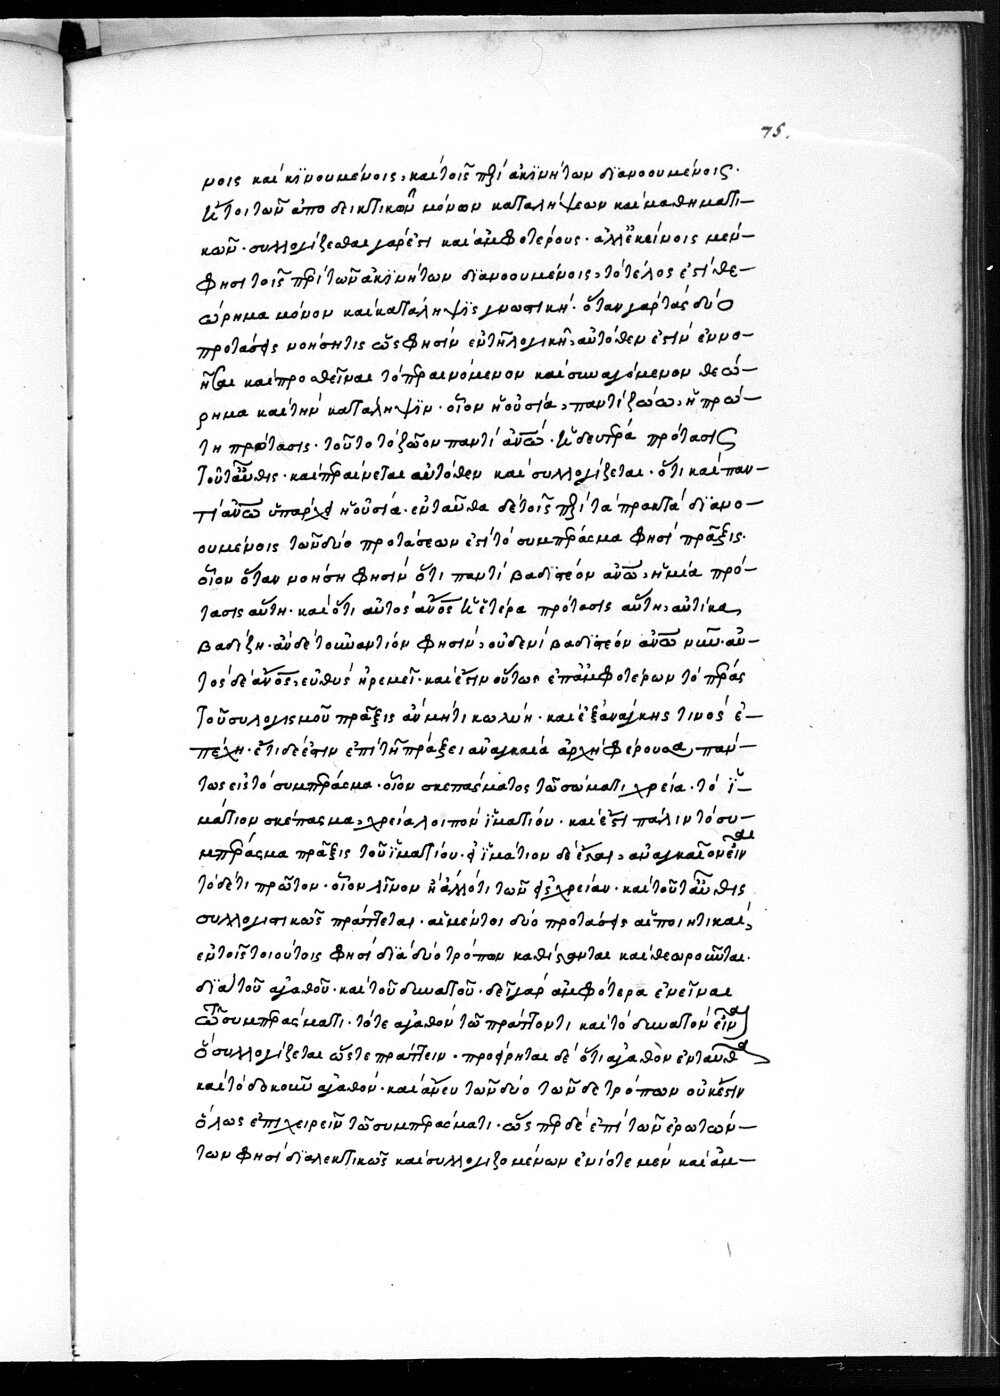 75.
μοις καὶ κινουμένοις, καὶ τοῖς περὶ ἀκινήτων διανοουμένοις·
ἤτοι τῶν ἀποδεικτικῶν μόνων καταλήψεων καὶ μαθηματι-
κῶν· συλλογίζεσθαι γὰρ ἐστὶ καὶ ἀμφοτέρους· ἀλλ' ἐκείνοις μὲν
φησὶ τοῖς περὶ τῶν ἀκινήτων διανοουμένοις, τὸ τέλος ἐστὶ θε-
ώρημα μόνον καὶ κατάληψις γνωστική· ὅταν γὰρ τὰς δύο
προτάσεις νοήσῃ τις ὥς φησιν ἐν τῇ λογικῇ, αὐτόθεν ἐστὶν ἐννο-
ῆσαι καὶ προσθεῖναι τὸ περαινόμενον καὶ συναγόμενον θεώ-
ρημα καὶ τὴν κατάληψιν· οἷον ἡ οὐσία, παντὶ ζώω, ἡ πρώ-
τη πρότασις· τοῦτο τὸ ζῶον παντὶ ἀνῶ· ἡ δευτέρα πρότασις
τοῦτ' αὖθις· καὶ περαίνεται αὐτόθεν καὶ συλλογίζεται· ὅτι καὶ παν-
τὶ ἀνῶ ὑπάρχει ἡ οὐσία· ἐνταῦθα δὲ τοῖς περὶ τὰ πρακτὰ διανο-
ουμένοις τῶν δύο προτάσεων ἐστὶ τὸ συμπέρασμα φησὶ πρᾶξις·
οἷον ὅταν νοήσῃ φησὶν ὅτι παντὶ βαδιστέον ἀνῶ, ἡ μία πρό-
τασις αὕτη· καὶ ὅτι αὐτὸς ἀνος ἡ ἑτέρα πρότασις αὕτη, αὐτίκα
βαδίζει· ἂν δὲ τοὐναντίον φησὶν, οὐδενὶ βαδιστέον ἀνῶ νῦν· αὐ-
τὸς δὲ ἀνος, εὐθὺς ἠρεμεῖ· καὶ ἔστιν οὕτως ἐπ' ἀμφοτέρων τὸ πέρας
τοῦ συλλογισμοῦ πρᾶξις ἂν μή τι κωλύῃ· καὶ ἐξ ἀνάγκης τινὸς ἐ-
πέχῃ· ἔτι δέ ἐστιν ἐπὶ τῇ πράξει ἀναγκαία ἀρχὴ φέρουσα παν-
τως εἰς τὸ συμπέρασμα· οἷον σκεπάσματος τῶ σώματι χρεία· τὸ ἱ-
μάτιον σκέπασμα, χρεία λοιπὸν ἱματίου· καὶ ἐστὶ πάλιν τὸ συ-
μπέρασμα πρᾶξις τοῦ ἱματίου· εἰ ἱμάτιον δὲ ἔσται, ἀναγκαῖον εἶναι
τὸ δέ τι πρῶτον· οἷον λῖνον ἢ ἄλλό τι τῶν εἰς χρείαν· καὶ τοῦτ' αὖθις
συλλογιστικῶς πράττεται· αἱ μέντοι δύο προτάσεις αἱ ποιητικαὶ,
ἐν τοῖς τοιούτοις φησὶ διὰ δύο τρόπων καθίστανται καὶ θεωροῦνται·
διὰ τοῦ ἀγαθοῦ· καὶ τοῦ δυνατοῦ· δεῖ γὰρ ἀμφότερα ἐνεῖναι
τῶ συμπεράσματι· τότε ἀγαθὸν τῶ πράττοντι καὶ τὸ δυνατὸν εἶναι
ὃ συλλογίζεται ὥστε πράττειν· προείρηται δὲ ὅτι ἀγαθὸν ἐνταῦθα
καὶ τὸ δοκοῦν ἀγαθόν· καὶ ἄνευ τῶν δύο τῶνδε τρόπων οὐκ ἔστιν
ὅλως ἐπιχειρεῖν τῶ συμπεράσματι· ὥσπερ δὲ ἐπὶ τῶν ἐρωτών-
των φησὶ διαλεκτικῶς καὶ συλλογιζομένων ἐνίοτε μὲν καὶ ἀμ-